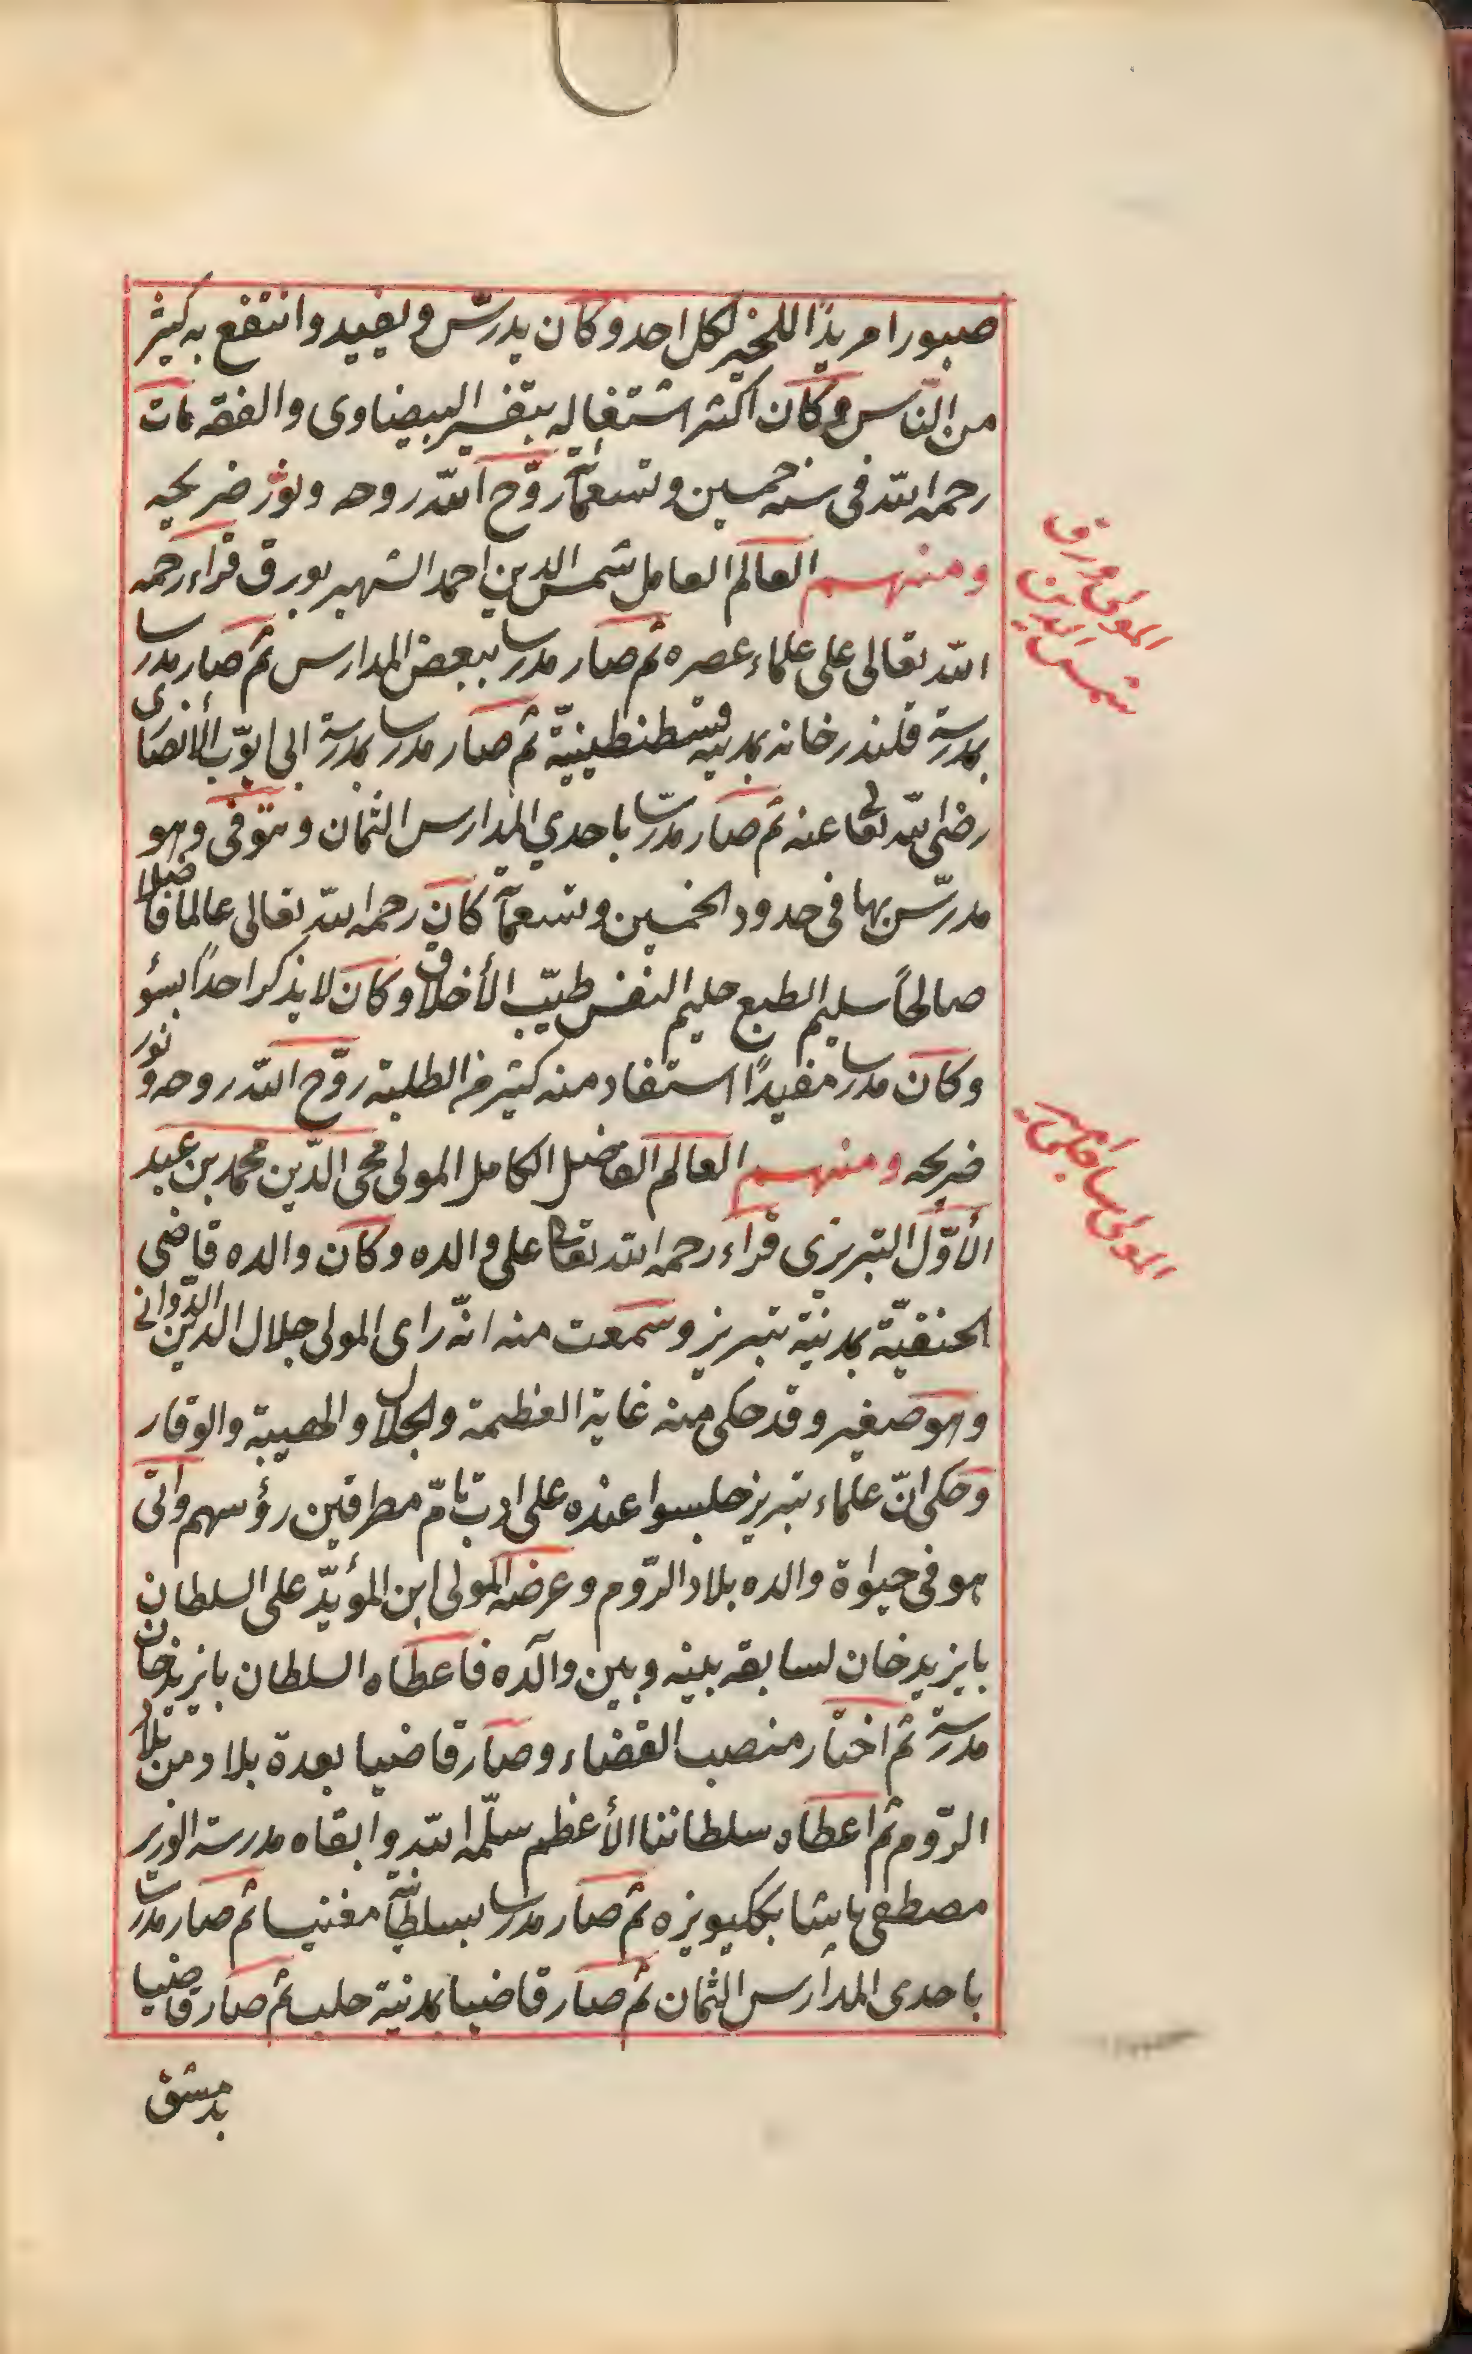 صبورا مريدًا للخير لكل احد وكان يدرّس ويفيد وانتفع به كثير
من النّاس وكان اكثر اشتغاله بتفسير البيضاوى والفقه مات
رحمه الله فى سنه خمسين وتسعمائة روّح الله روحه ونوّر ضريحه
ومنهم العالم العامل شمس الدين احمد الشهير بورق قراء رحمه
الله تعالى على علماء عصره ثم صار مدرسا ببعض المدارس ثم صار مدرسا
بمدرسة قلندرخانه بمدينة قسطنطينيّة ثم صار مدرسا بمدرسة ابى ايوّب الأنصارى
رضى الله تعالى عنه ثم صار مدرّسا باحدي المدارس الثمان وتوفى وهو
مدرّس بها فى حدود الخمسين وتسعمائة كان رحمه الله تعالى عالما فاضلا
صالحًا سليم الطبع حليم النفس طيّب الأخلاق وكان لا يذكر احدًا بسؤ
وكان مدرسا مفيدًا استفاد منه كثير من الطلبة روّح الله روحه ونور
ضريحه ومنهم العالم الفاضل الكامل المولى محى الدّين محمد بن عبد
الأوّل التبريزى قراء رحمه الله تعالى على والده وكان والده قاضى
الحنفيّة بمدينة تبريز وسمعت منه انّه راى المولى جلال الدين الدّوانى
وهو صغير وقد حكى منه غاية العظمة والجلال والهيبة والوقار
وحكى انّ علماء تبريز جلسوا عنده على ادب تامّ مطرقين رؤسهم واتى
هو فى حيوة والده بلاد الرّوم وعرضه المولى ابن المؤيّد على السلطان
بايزيد خان لسابقه بينه وبين والده فاعطاه السلطان بايزيد خان
مدرسة ثم اختار منصب القضاء وصار قاضيا بعدة بلاد من بلاد
الرّوم ثم اعطاه سلطاننا الأعظم سلّمه الله وابقاه مدرسة الوزير
مصطفى پاشا بككيويزه ثم صار مدرسا بسلطانية مغنيسا ثم صار مدرسا
باحدى المدارس الثمان ثم صار قاضيا بمدينة حلب ثم صار قاضيا
بدمشق
المولى ورق
شمس الدين
المولى ساچلى